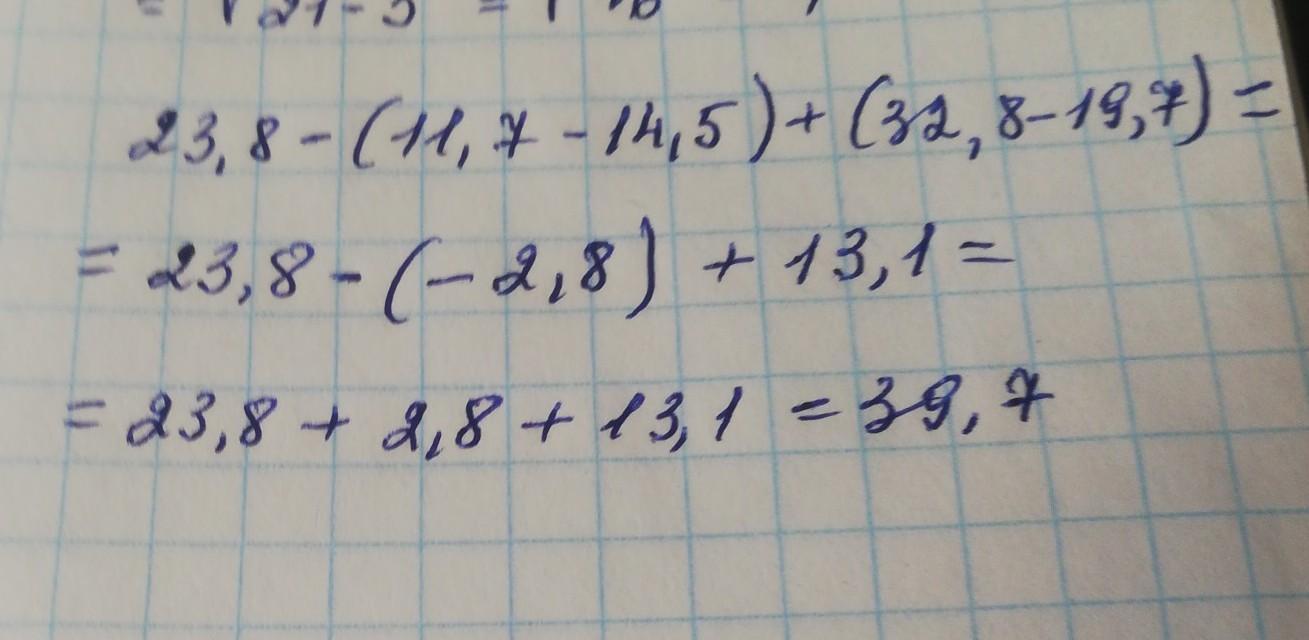 23,8-(11,7-14,5)+(32,8-19,7)=
=23,8-(-2,8)+13,1=
=23,8+2,8+13,1=39,7